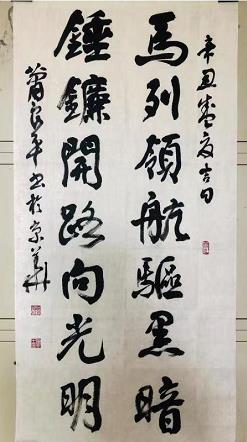 辛丑盛夏吉日
馬列領航驅黑暗
錘鐮開路向光明
良平书於京華